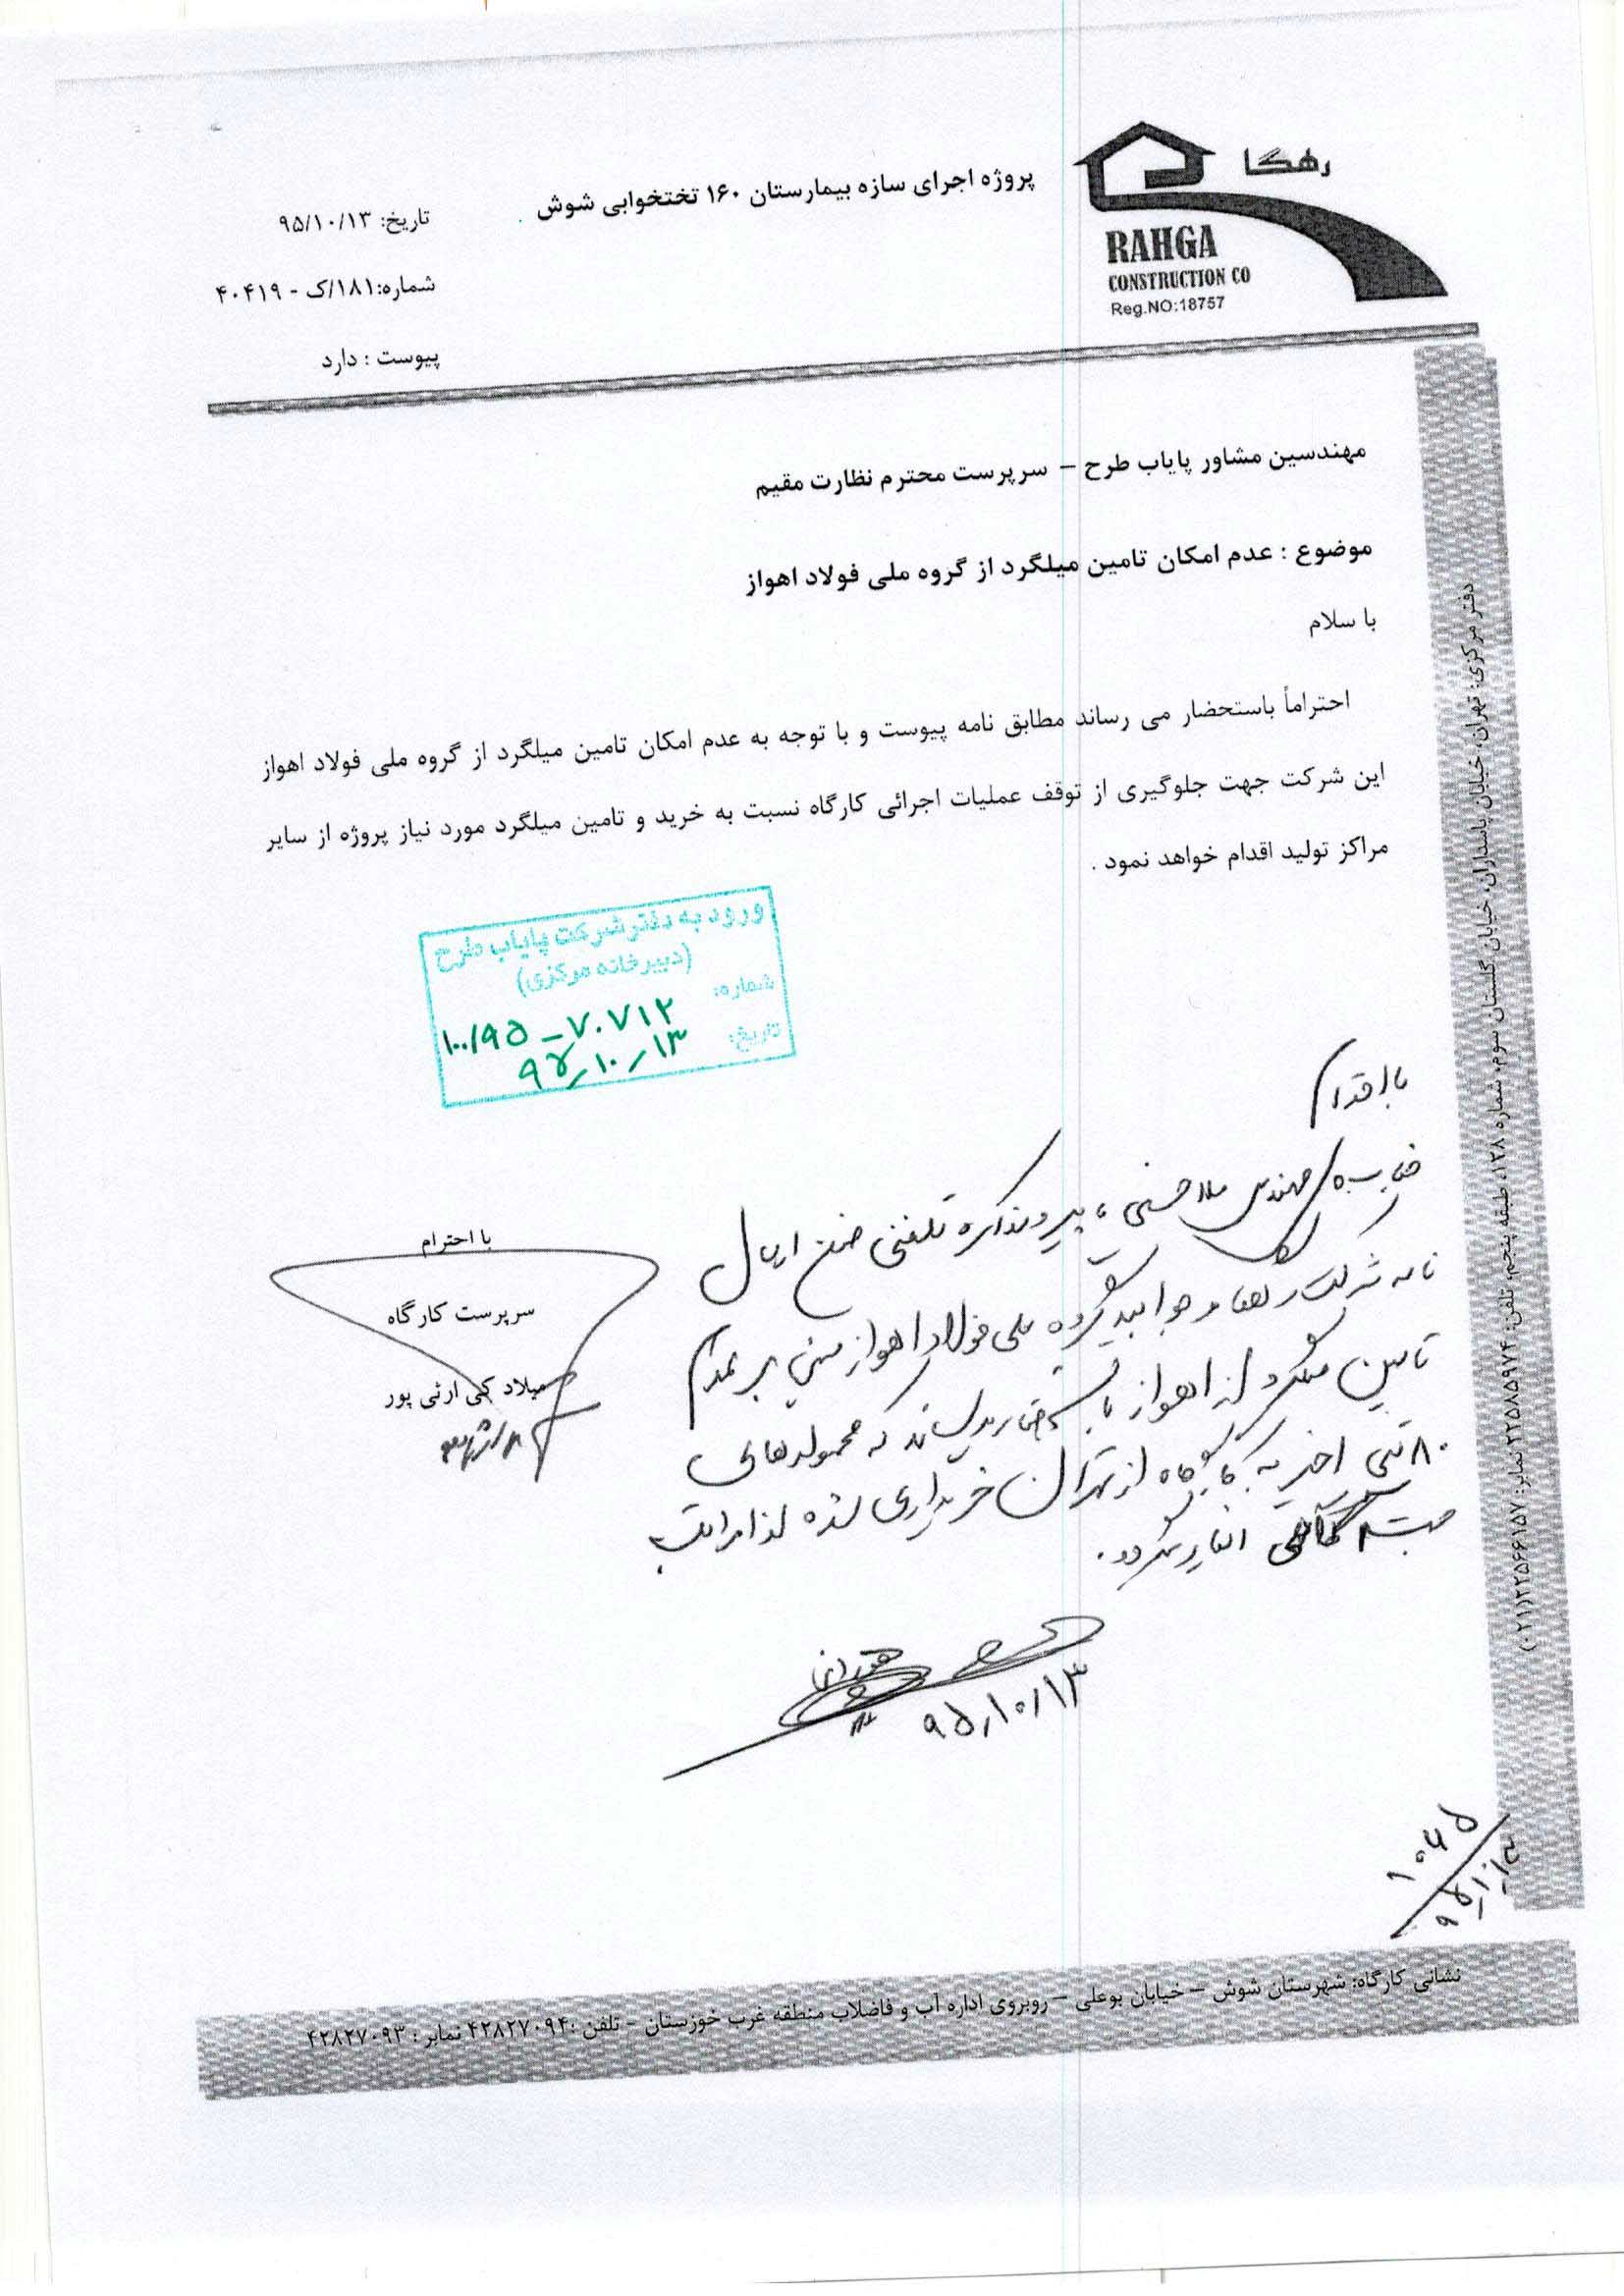 رهگا
RAHGA
CONSTRUCTION CO
Reg.NO:18757
پروژه اجرای سازه بیمارستان ۱۶۰ تختخوابی شوش
تاریخ: ۹۵/۱۰/۱۳
شماره:۱۸۱/ک - ۴۰۴۱۹
پیوست : دارد
مهندسین مشاور پایاب طرح – سرپرست محترم نظارت مقیم
موضوع : عدم امکان تامین میلگرد از گروه ملی فولاد اهواز
با سلام
احتراماً باستحضار می رساند مطابق نامه پیوست و با توجه به عدم امکان تامین میلگرد از گروه ملی فولاد اهواز
این شرکت جهت جلوگیری از توقف عملیات اجرائی کارگاه نسبت به خرید و تامین میلگرد مورد نیاز پروژه از سایر
مراکز تولید اقدام خواهد نمود .
ورود به دفتر شرکت پایاب طرح
(دبیرخانه مرکزی)
شماره: ۱۰۰/۹۵ – ۷۰۷۱۲
تاریخ: ۹۵/۱۰/۱۳
با احترام
سرپرست کارگاه
میلاد کی ارثی پور
جناب مهندس ملاحسنی، پیرو مذاکره تلفنی ضمن ارسال
نامه شرکت رهگا و جوابیه گروه ملی فولاد اهواز مبنی بر عدم
تامین میلگرد از اهواز باستحضار میرساند که محموله‌های
۸۰ تنی اخیر به کارگاه از تهران خریداری شده لذا مراتب
جهت آگاهی ایفاد میگردد.
۹۵/۱۰/۱۳
۱۰۶۵
۹۵/۱۰/۱۳
دفتر مرکزی: تهران، خیابان پاسداران، خیابان گلستان سوم، شماره ۱۲۸، طبقه پنجم، تلفن: ۲۲۵۸۵۹۷۴ نمابر: ۲۲۵۶۶۱۵۷(۰۲۱)
نشانی کارگاه: شهرستان شوش – خیابان بوعلی – روبروی اداره آب و فاضلاب منطقه غرب خوزستان - تلفن :۴۲۸۲۷۰۹۴ نمابر : ۴۲۸۲۷۰۹۳